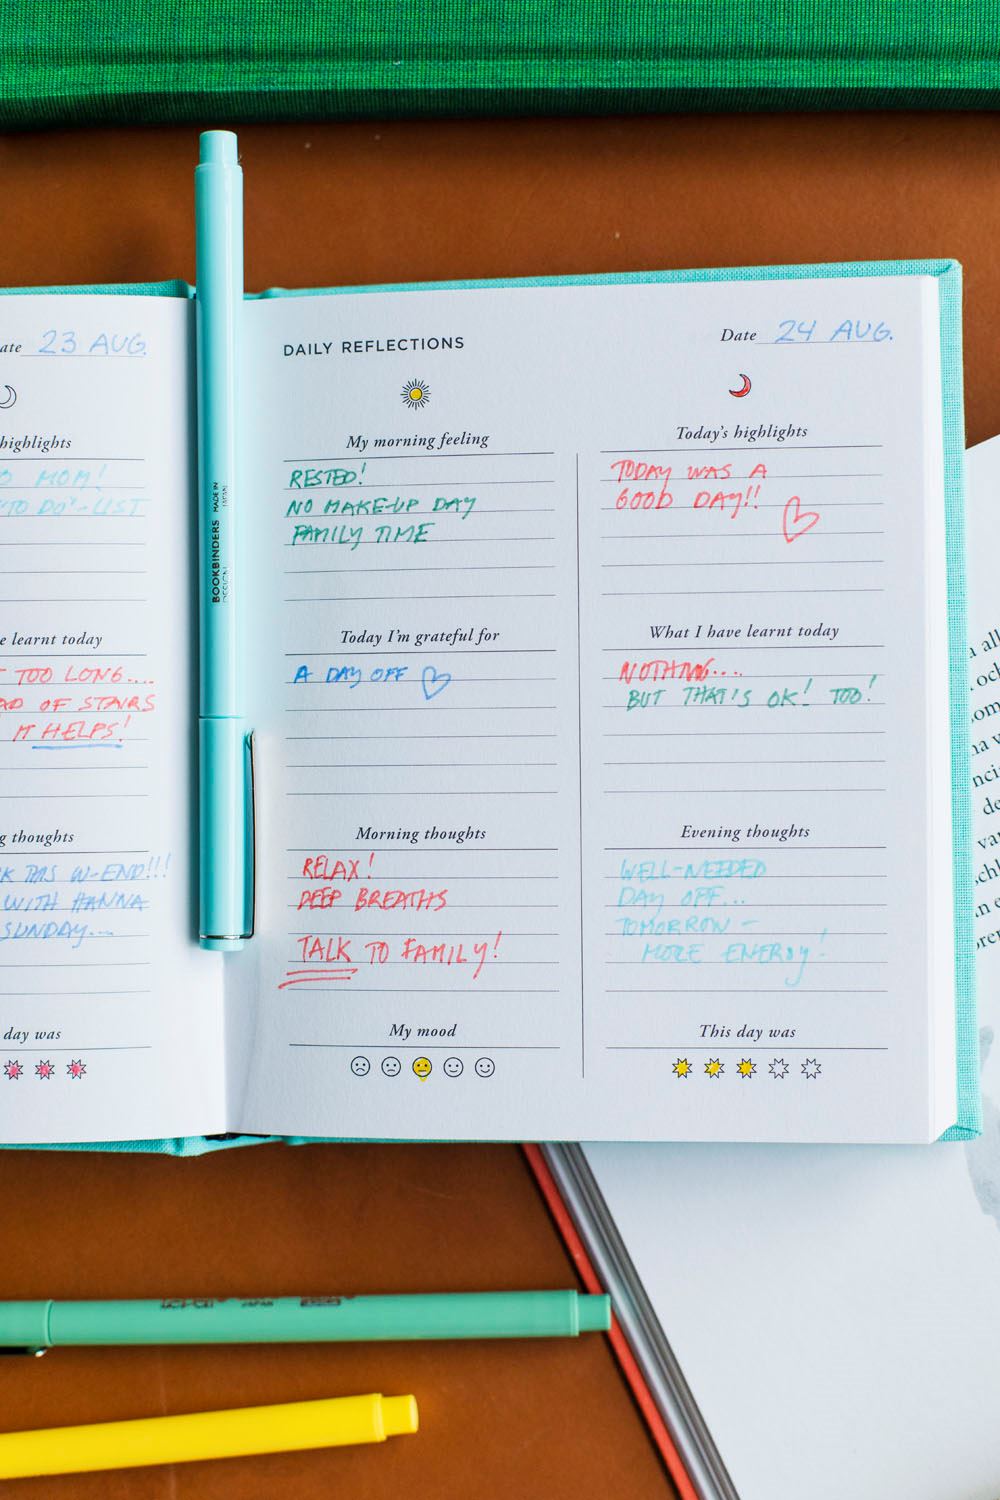 ate 23 AUG.
highlights
MOM!
"TO DO"-LIST
e learnt today
TOO LONG....
OF STAIRS
IT HELPS!
g thoughts
THIS W-END!!!
WITH HANNA
SUNDAY...
day was
BOOKBINDERS
DESIGN
MADE IN
JAPAN
DAILY REFLECTIONS
Date 24 AUG.
My morning feeling
RESTED!
NO MAKE-UP DAY
FAMILY TIME
Today I'm grateful for
A DAY OFF
Morning thoughts
RELAX!
DEEP BREATHS
TALK TO FAMILY!
My mood
Today's highlights
TODAY WAS A
GOOD DAY!!
What I have learnt today
NOTHING....
BUT THAT'S OK! TOO!
Evening thoughts
WELL-NEEDED
DAY OFF...
TOMORROW –
MORE ENERGY!
This day was
a all
och
om
na v
nci
de
var
chl
n e
JAPAN